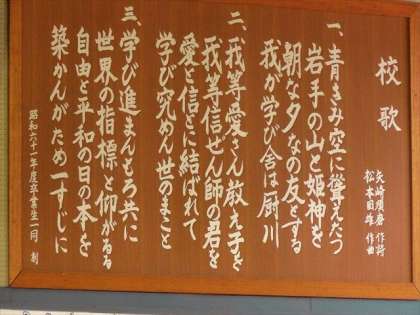 校歌
矢崎順磨 作詩
松本目雄 作曲
一、青きみ空に聳えたつ
岩手の山と姫神を
朝な夕なの友とする
我が学び舎は厨川
二、我等愛さん教え子を
我等信ぜん師の君を
愛と信とに結ばれて
学び究めん世のまこと
三、学び進まんもろ共に
世界の指標と仰がるゝ
自由と平和の日の本を
築かんがため一すじに
昭和六十一年度卒業生一同 制